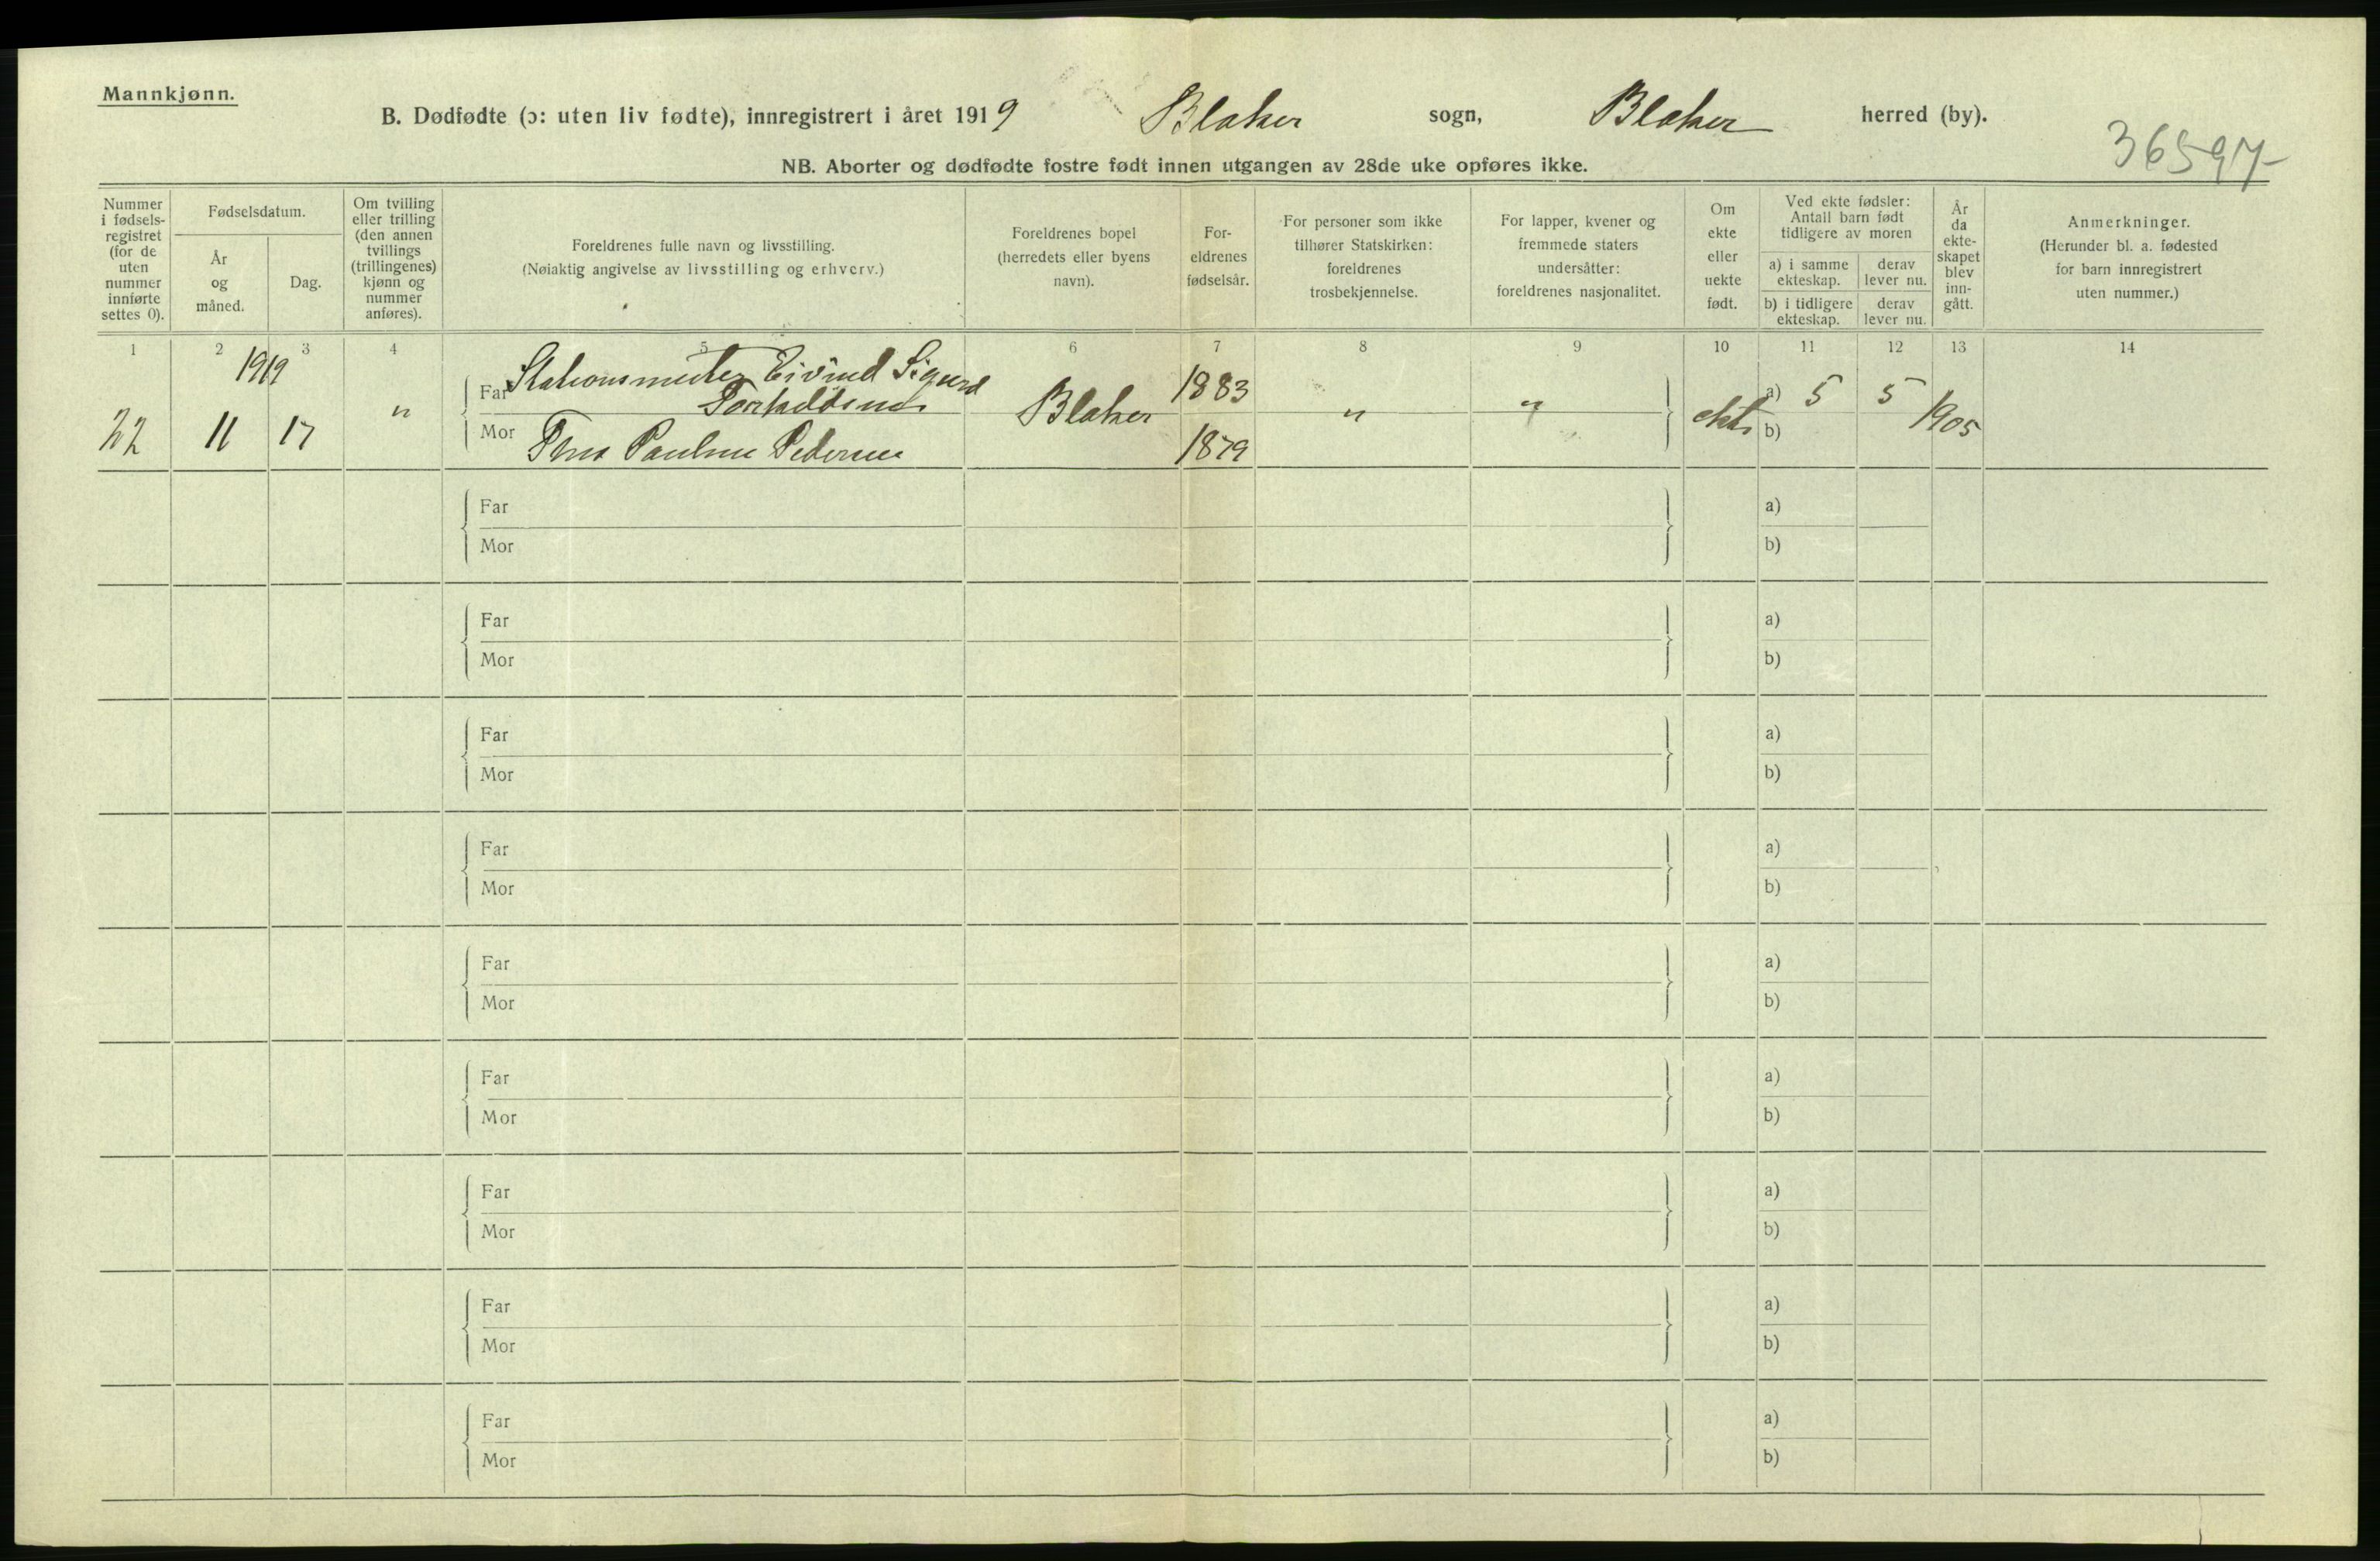 Mannkjønn.
B. Dødfødte (ɔ: uten liv fødte), innregistrert i året 1919 Blaker sogn, Blaker herred (by).
36597
NB. Aborter og dødfødte fostre født innen utgangen av 28de uke opføres ikke.
Nummer
i fødsels-
registret
(for de
uten
nummer
innførte
settes 0).
Fødselsdatum.
År
og
måned.
Dag.
Om tvilling
eller trilling
(den annen
tvillings
(trillingenes)
kjønn og
nummer
anføres).
Foreldrenes fulle navn og livsstilling.
(Nøiaktig angivelse av livsstilling og erhverv.)
Foreldrenes bopel
(herredets eller byens
navn).
For-
eldrenes
fødselsår.
For personer som ikke
tilhører Statskirken:
foreldrenes
trosbekjennelse.
For lapper, kvener og
fremmede staters
undersåtter:
foreldrenes nasjonalitet.
Om
ekte
eller
uekte
født.
Ved ekte fødsler:
Antall barn født
tidligere av moren
a) i samme
ekteskap.
derav
lever nu.
b) i tidligere
ekteskap.
derav
lever nu.
År
da
ekte-
skapet
blev
inn-
gått.
Anmerkninger.
(Herunder bl. a. fødested
for barn innregistrert
uten nummer.)
1 2 3 4 5 6 7 8 9 10 11 12 13 14
1919
Far Stationsmester Eivind Sigurd 1883 a) 5 5
22 11 17 " Blaker " " ekte 1905
Mor Pedersen 1879 b)
Far a)
Mor b)
Far a)
Mor b)
Far a)
Mor b)
Far a)
Mor b)
Far a)
Mor b)
Far a)
Mor b)
Far a)
Mor b)
Far a)
Mor b)
Far a)
Mor b)